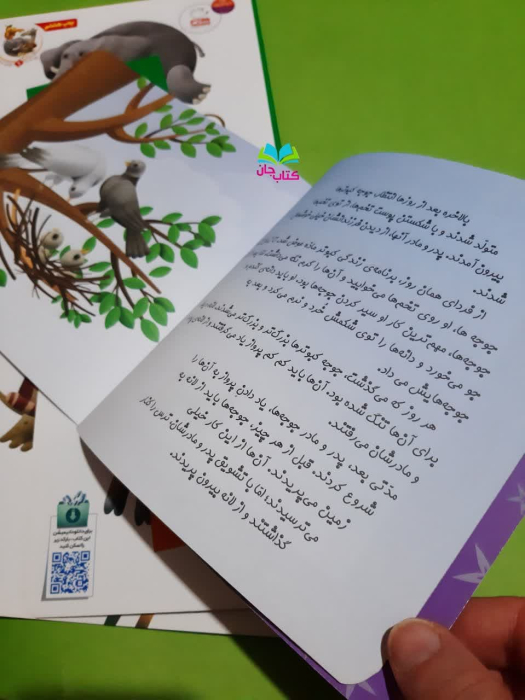 کتاب جان
بالاخره بعد از روزها انتظار، جوجه کبوترها
متولد شدند و با شکستن پوست تخم‌ها، از توی تخم
بیرون آمدند. پدر و مادر آنها، از دیدن فرزندانشان خیلی خوشحال
شدند.
از فردای همان روز، برنامه‌ی زندگی کبوتر ماده عوض شد. تا
جوجه ها، او روی تخم‌ها می‌خوابید و آن‌ها را گرم نگه می‌داشت
جوجه‌ها، مهم ترین کار او سیر کردن جوجه‌ها بود. او باید دائمی
جو می‌خورد و دانه‌ها را توی شکمش خرد و نرم می‌کرد و بعد به
جوجه‌هایش می داد.
هر روز که می‌گذشت، جوجه کبوترها بزرگ‌تر و بزرگ‌تر می‌شدند.
برای آن‌ها تنگ شده بود. آن‌ها باید کم کم پرواز یاد می‌گرفتند و از
و مادرشان می‌رفتند.
مدّتی بعد، پدر و مادر جوجه‌ها، یاد دادن پرواز به آن‌ها را
شروع کردند. قبل از هر چیز، جوجه‌ها باید از لانه به
زمین می‌پریدند. آن‌ها از این کار خیلی
می‌ترسیدند؛ امّا با تشویق پدر و مادرشان، ترس را کنار
گذاشتند و از لانه بیرون پریدند.